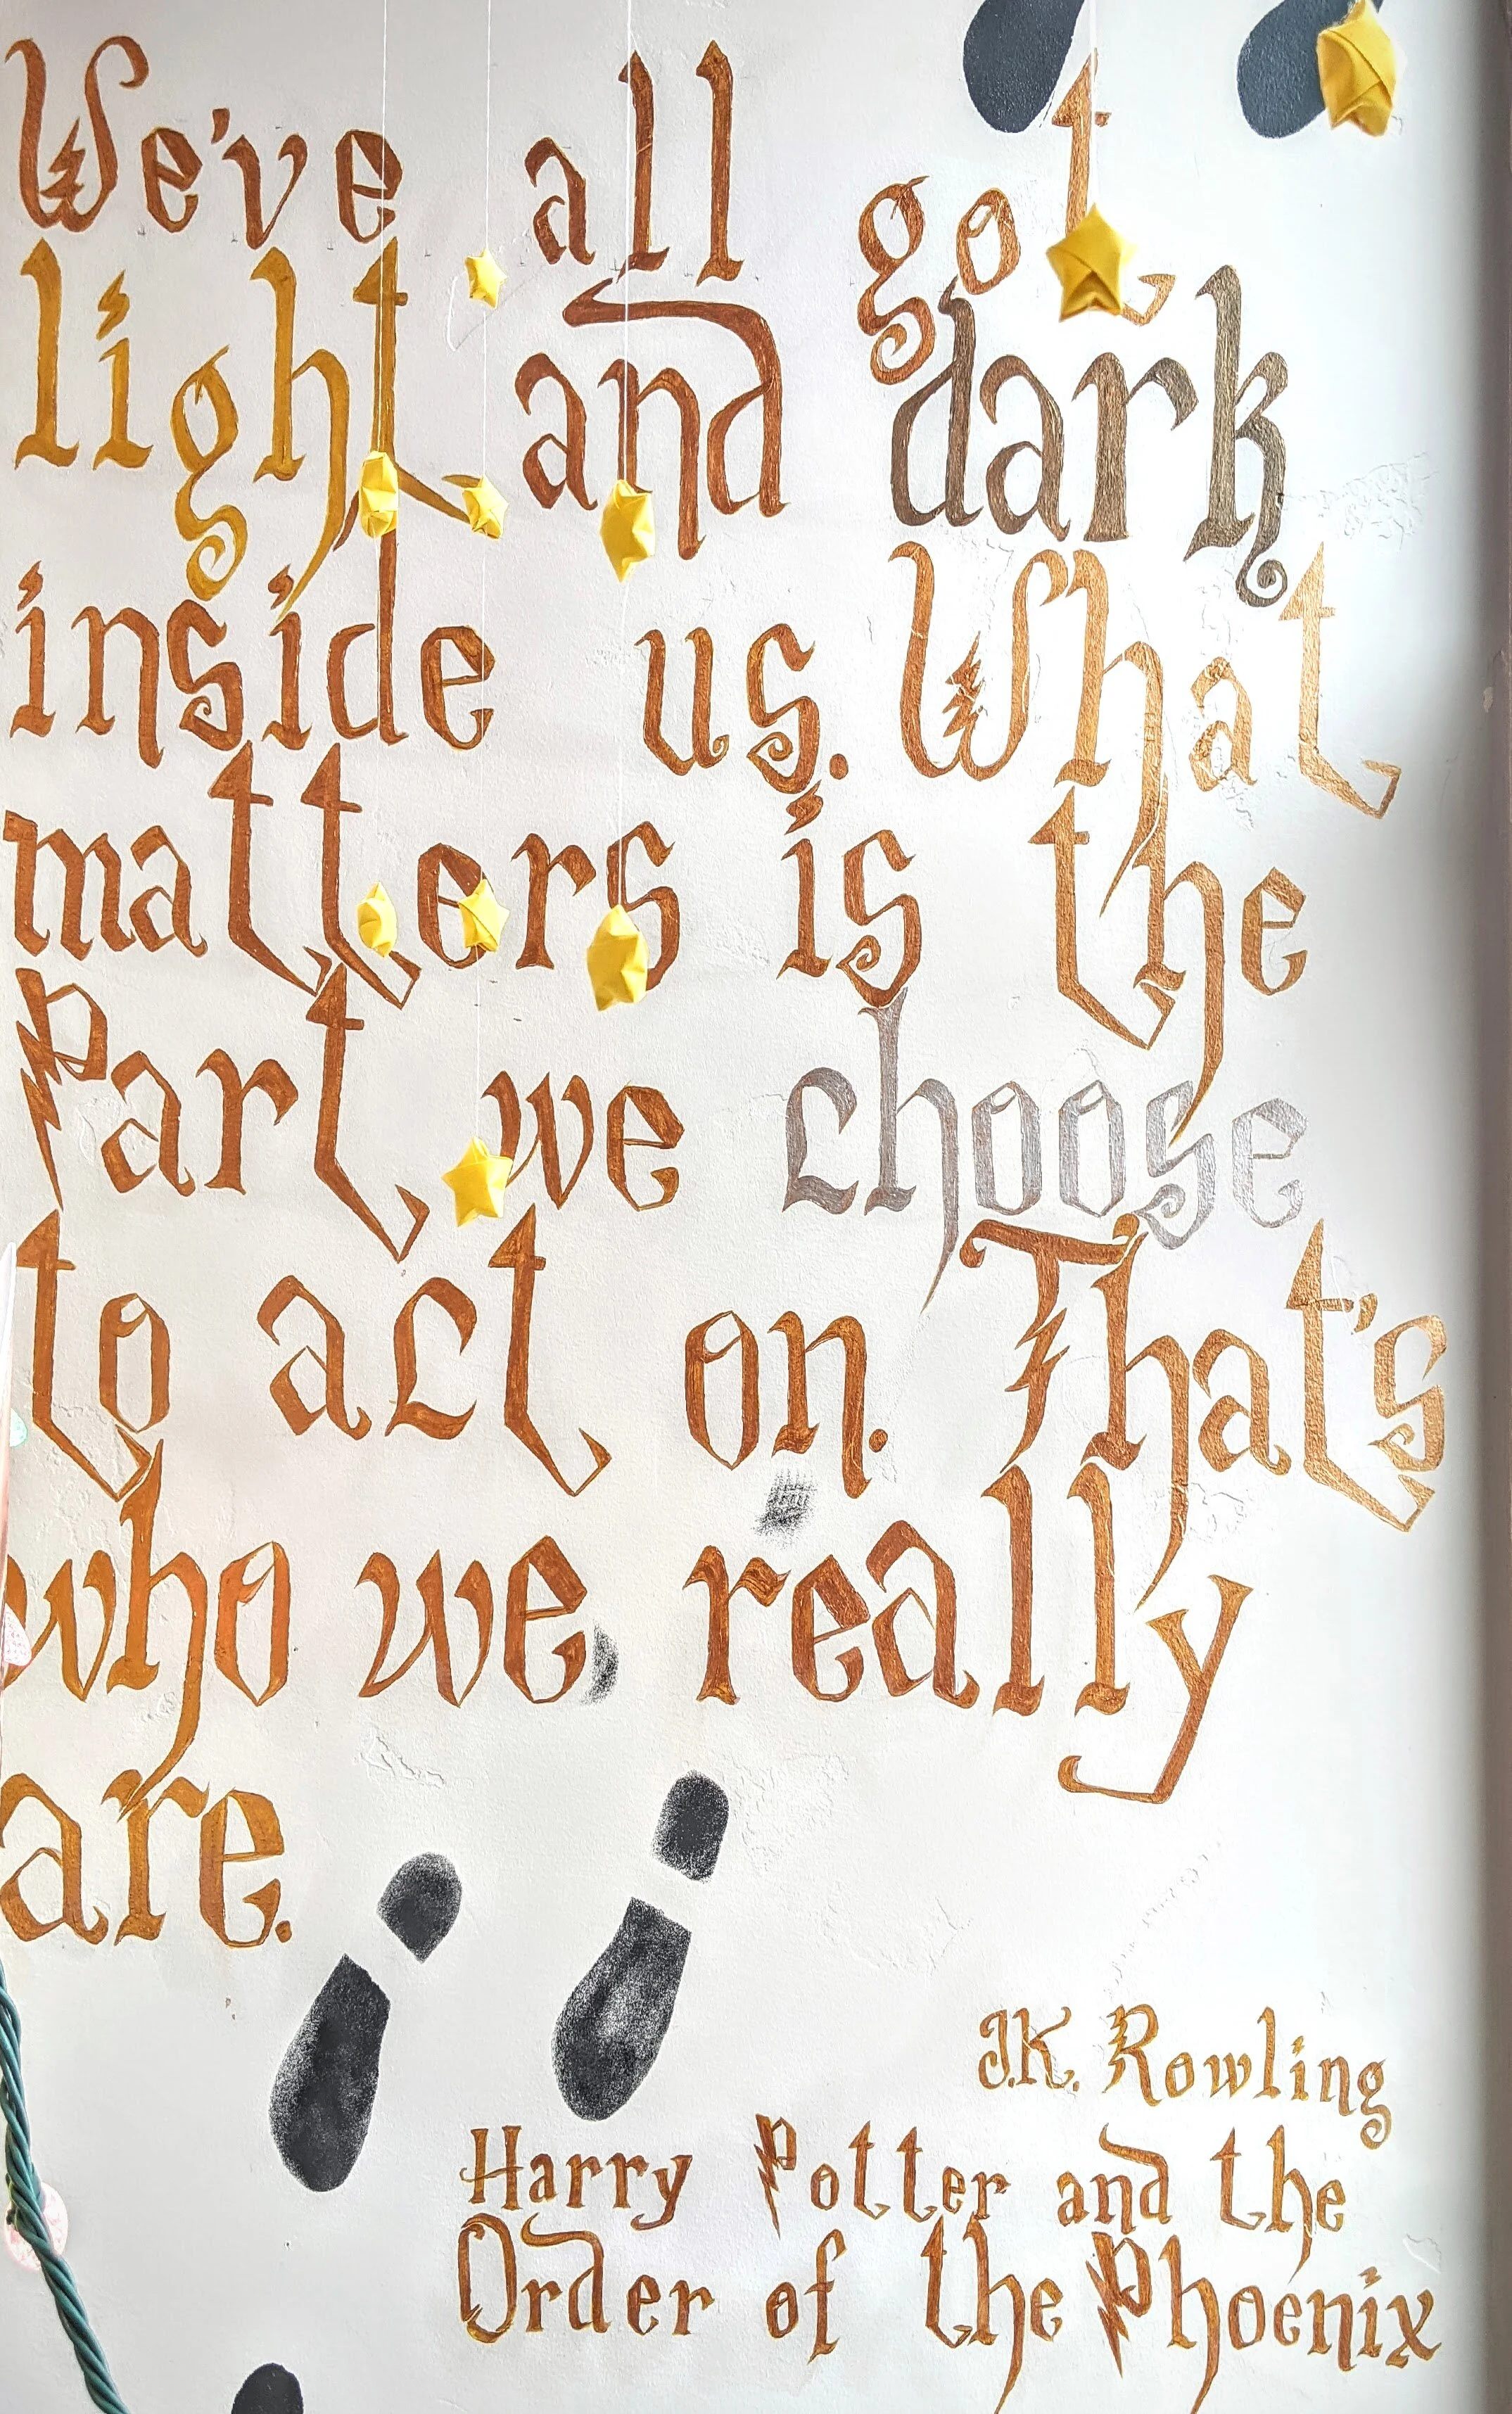 We've all got
light and dark
inside us. What
matters is the
Part we choose
to act on. That's
who we really
are.
J.K. Rowling
Harry Potter and the
Order of the Phoenix